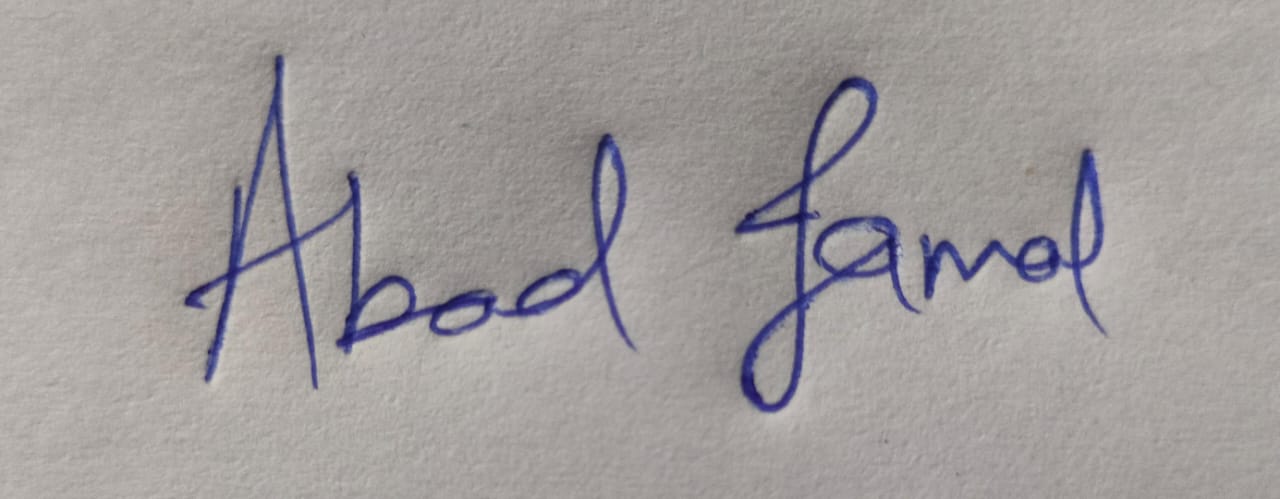 Abad Jamal